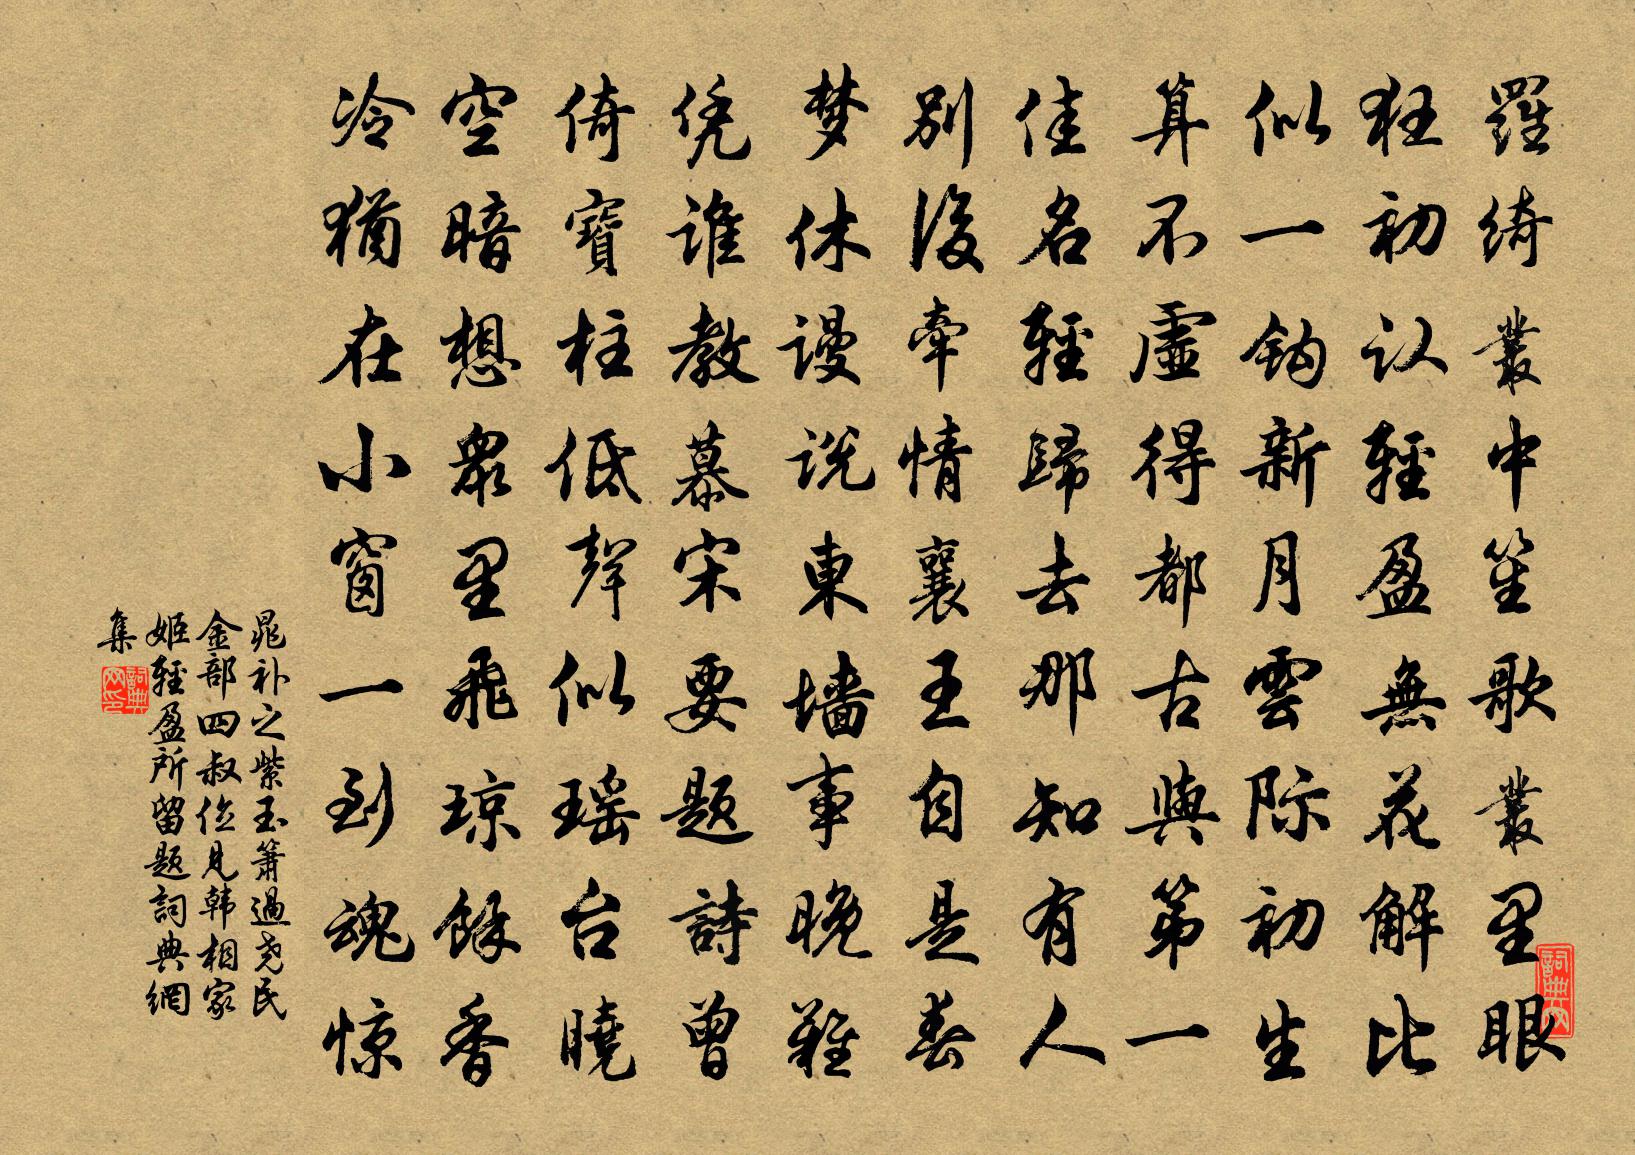 羅綺叢中笙歌叢里眼
狂初认輕盈無花解比
似一鈎新月雲际初生
算不虛得都古與第一
佳名輕歸去那知有人
別後牽情襄王自是春
梦休谩说東墻事晚難
凭谁教慕宋要题詩曾
倚寶柱低聲似瑶台曉
空暗想眾里飛琼餘香
冷猶在小窗一到魂惊
晁补之紫玉簫過尧民
金部四叔位見韩相家
姬輕盈所留题詞典網
集
詞典网印
詞典网